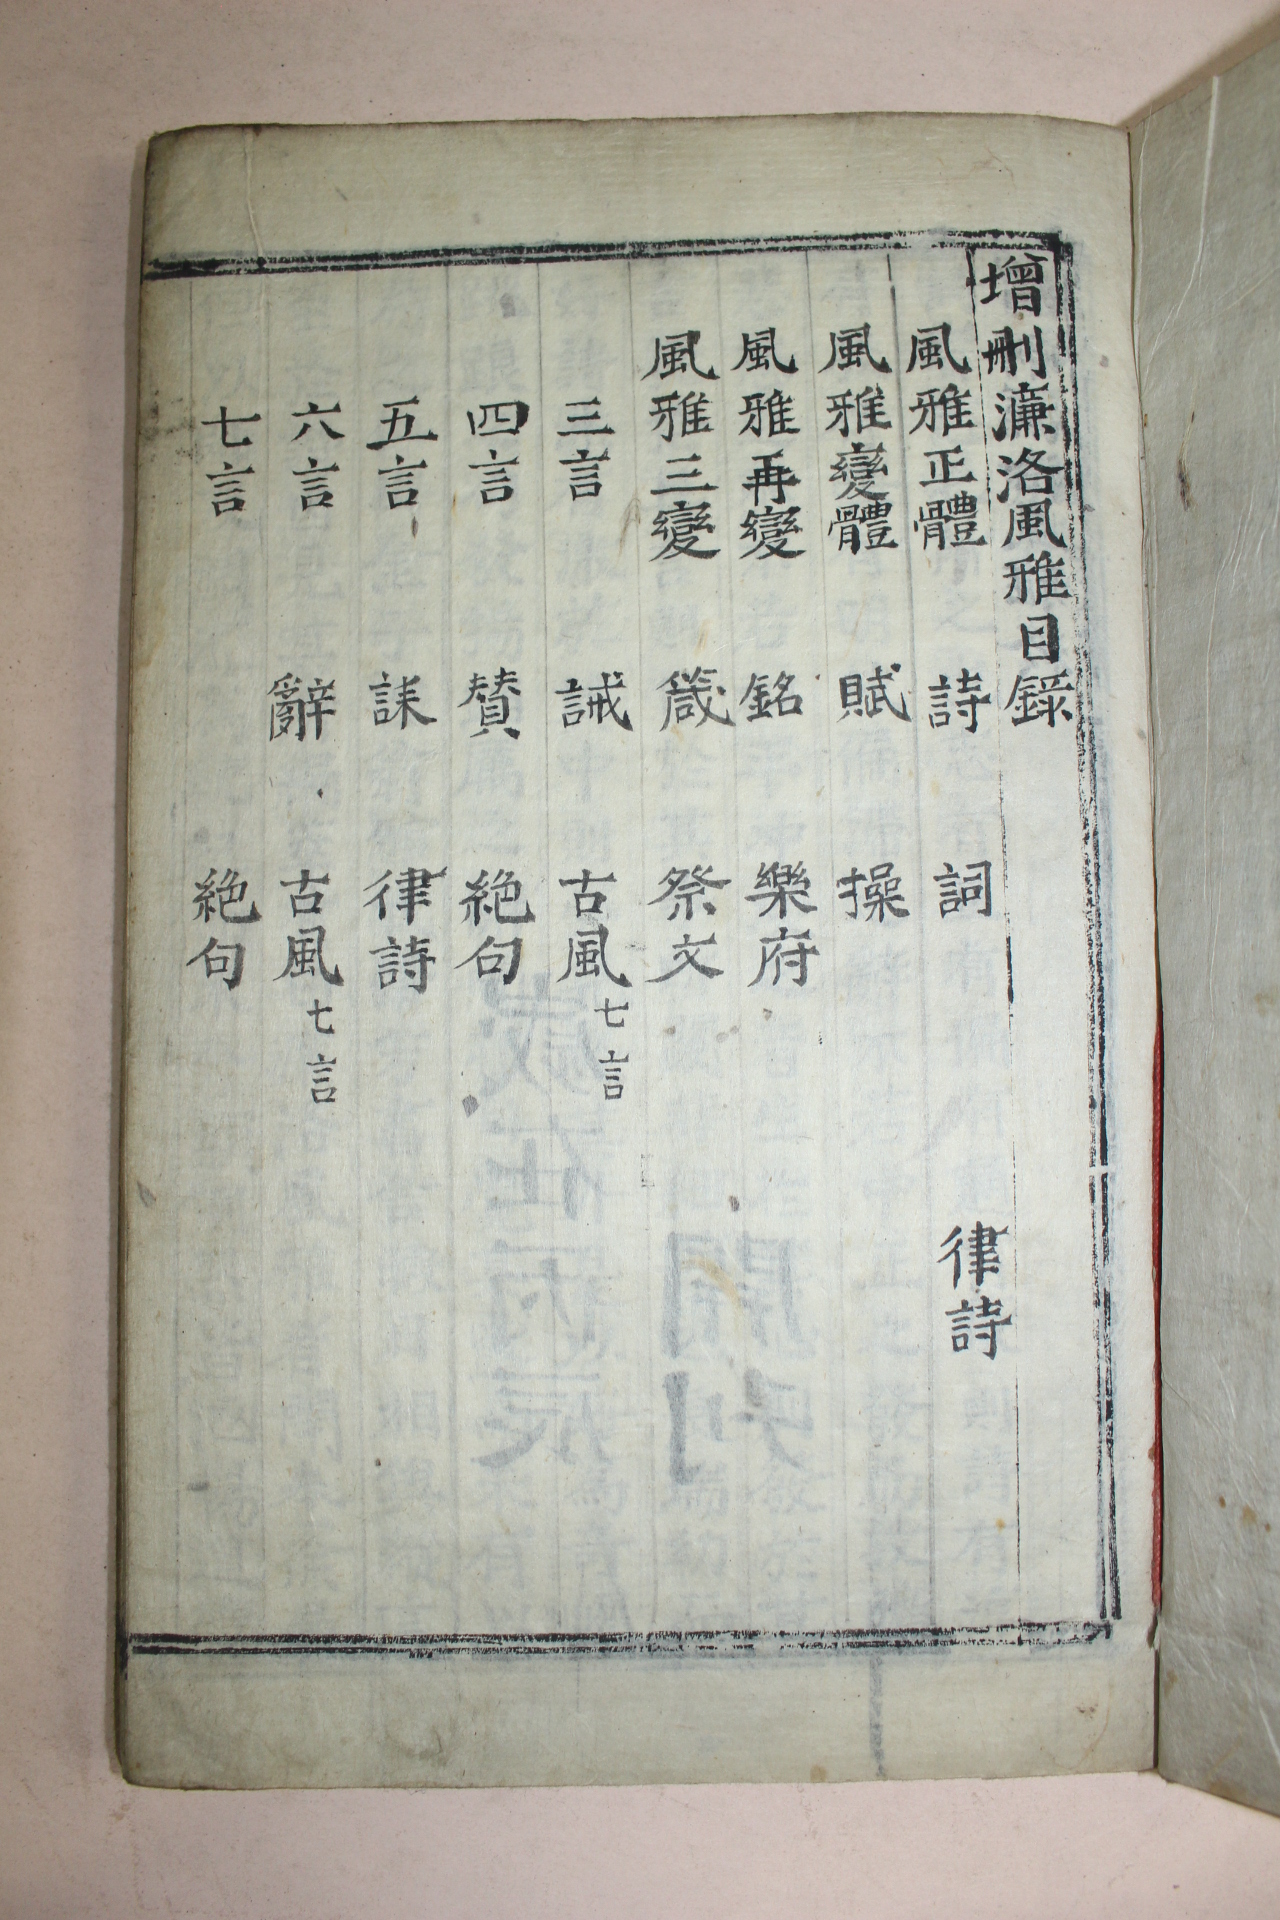 增刪濂洛風雅目錄
風雅正體 詩 詞 律詩
風雅變體 賦 操
風雅再變 銘 樂府
風雅三變 箴 祭文
三言 誡 古風七言
四言 賛 絕句
五言 誄 律詩
六言 辭 古風七言
七言 絕句